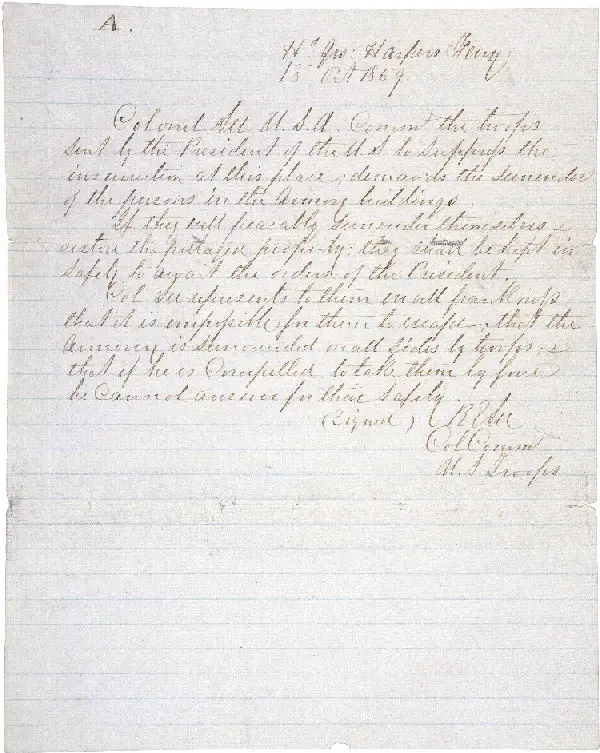 A.
Hd Qrs: Harpers Ferry
18 Oct 1859
Colonel Lee U.S.A. Commd the troops
sent by the President of the U S to suppress the
insurrection at this place; demands the surrender
of the persons in the Armory buildings.
If they will peaceably surrender themselves &
restore the pillaged property; they shall be kept in
safety to await the orders of the President.
Col Lee represents to them in all frankness
that it is impossible for them to escape; that the
Armory is surrounded on all sides by troops; &
that if he is compelled to take them by force
he cannot answer for their safety.
(Signed) R E Lee
Col Commd
U.S. Troops